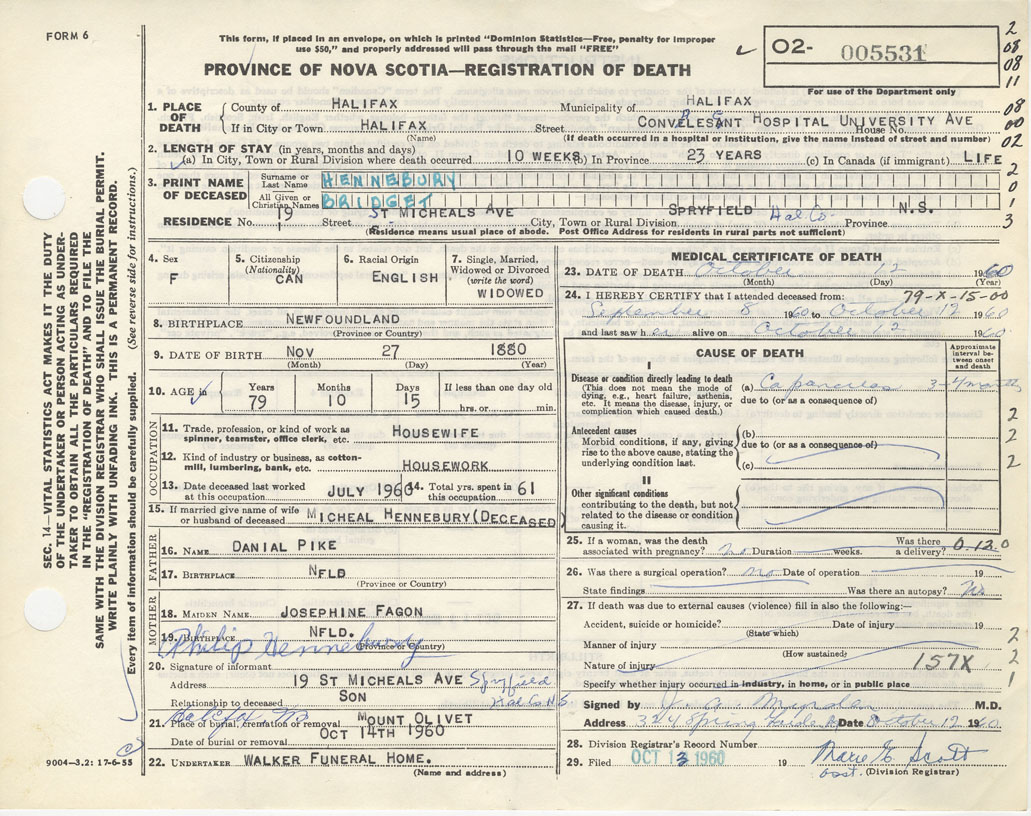 FORM 6
This form, if placed in an envelope, on which is printed "Dominion Statistics—Free, penalty for improper
use $50," and properly addressed will pass through the mail "FREE"
PROVINCE OF NOVA SCOTIA—REGISTRATION OF DEATH
O2- 005531
For use of the Department only
2
08
08
11
08
00
02
2
1
3
1. PLACE OF DEATH
County of HALIFAX Municipality of HALIFAX
If in City or Town HALIFAX Street CONVELESANT HOSPITAL UNIVERSITY AVE House No.
(Name) (If death occurred in a hospital or institution, give the name instead of street and number)
2. LENGTH OF STAY (in years, months and days)
(a) In City, Town or Rural Division where death occurred 10 WEEKS (b) In Province 23 YEARS (c) In Canada (if immigrant) LIFE
3. PRINT NAME OF DECEASED
Surname or Last Name HENNEBURY
All Given or Christian Names BRIDGET
RESIDENCE No. 19 Street ST MICHEALS AVE City, Town or Rural Division SPRYFIELD Hal Co. Province N.S.
(Residence means usual place of abode. Post Office Address for residents in rural parts not sufficient)
4. Sex F
5. Citizenship (Nationality) CAN
6. Racial Origin ENGLISH
7. Single, Married, Widowed or Divorced (write the word) WIDOWED
8. BIRTHPLACE NEWFOUNDLAND
(Province or Country)
9. DATE OF BIRTH NOV 27 1880
(Month) (Day) (Year)
10. AGE Years 79 Months 10 Days 15 If less than one day old
hrs. or min.
OCCUPATION
11. Trade, profession, or kind of work as spinner, teamster, office clerk, etc. HOUSEWIFE
12. Kind of industry or business, as cotton-mill, lumbering, bank, etc. HOUSEWORK
13. Date deceased last worked at this occupation JULY 1960 14. Total yrs. spent in this occupation 61
15. If married give name of wife or husband of deceased MICHEAL HENNEBURY (DECEASED)
FATHER
16. NAME DANIAL PIKE
17. BIRTHPLACE NFLD
(Province or Country)
MOTHER
18. MAIDEN NAME JOSEPHINE FAGON
19. BIRTHPLACE NFLD.
(Province or Country)
Philip Hennebury
20. Signature of informant
Address 19 ST MICHEALS AVE Spryfield
Relationship to deceased SON Hal Co N.S.
21. Place of burial, cremation or removal MOUNT OLIVET
Date of burial or removal OCT 14TH 1960
22. UNDERTAKER WALKER FUNERAL HOME.
(Name and address)
MEDICAL CERTIFICATE OF DEATH
23. DATE OF DEATH October 12 1960
(Month) (Day) (Year)
24. I HEREBY CERTIFY that I attended deceased from: 79-X-15-00
September 8 1960 to October 12 1960
and last saw her alive on October 12 1960
CAUSE OF DEATH
Approximate interval between onset and death
I
Disease or condition directly leading to death (a) Ca pancreas 3-4 months
(This does not mean the mode of dying, e.g., heart failure, asthenia, etc. It means the disease, injury, or complication which caused death.)
due to (or as a consequence of)
2
Antecedent causes (b)
Morbid conditions, if any, giving rise to the above cause, stating the underlying condition last.
due to (or as a consequence of)
2
(c)
2
II
Other significant conditions
contributing to the death, but not related to the disease or condition causing it.
25. If a woman, was the death associated with pregnancy? no Duration weeks. Was there a delivery? 0.12.0
26. Was there a surgical operation? no Date of operation 19
State findings Was there an autopsy? No
27. If death was due to external causes (violence) fill in also the following:—
Accident, suicide or homicide? Date of injury 19
(State which)
Manner of injury
(How sustained)
Nature of injury 157X
2
2
1
Specify whether injury occurred in industry, in home, or in public place
Signed by M.D.
Address Spring Date October 12 1960
28. Division Registrar's Record Number
29. Filed OCT 13 1960 19 Marie E. Scott
asst. (Division Registrar)
SEC. 14—VITAL STATISTICS ACT MAKES IT THE DUTY
OF THE UNDERTAKER OR PERSON ACTING AS UNDER-
TAKER TO OBTAIN ALL THE PARTICULARS REQUIRED
IN THE "REGISTRATION OF DEATH" AND TO FILE THE
SAME WITH THE DIVISION REGISTRAR WHO SHALL ISSUE THE BURIAL PERMIT.
WRITE PLAINLY WITH UNFADING INK. THIS IS A PERMANENT RECORD.
Every item of information should be carefully supplied. (See reverse side for instructions.)
9004—3.2: 17-6-55